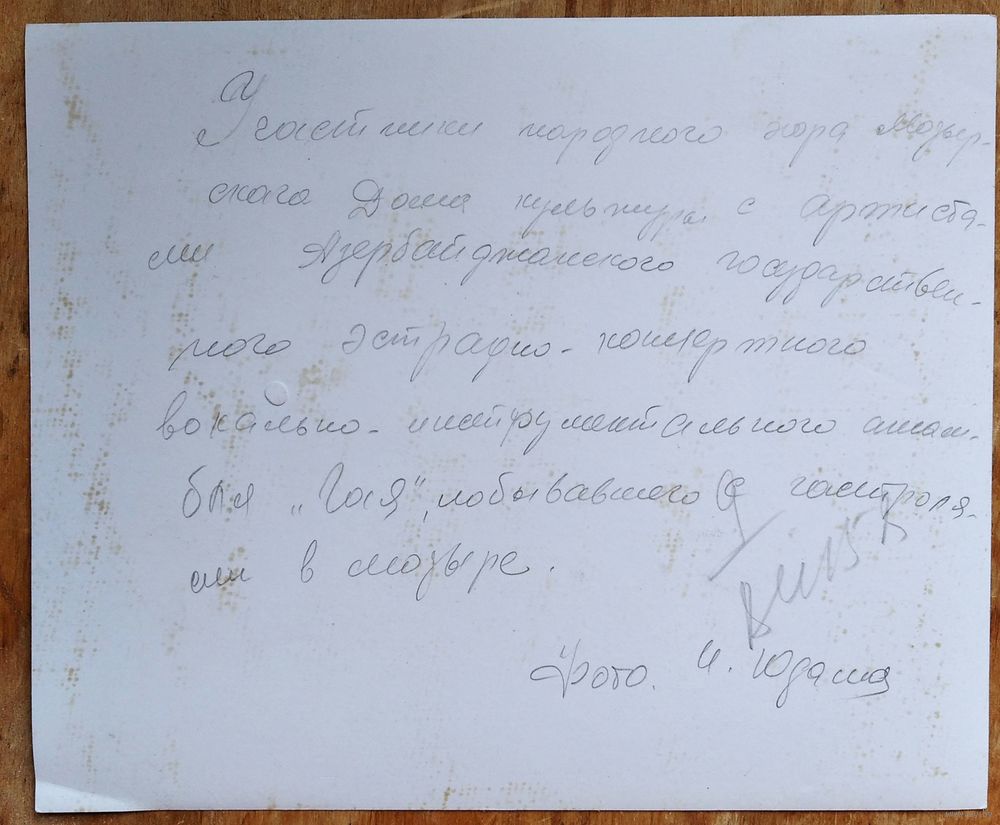 Участники народного хора Мозыр-
ского Дома культуры с артиста-
ми Азербайджанского государствен-
ного эстрадно-концертного
вокально-инструментального ансам-
бля „Гая“, побывавшего с гастроля-
ми в Мозыре.
Фото. И. Юдаша